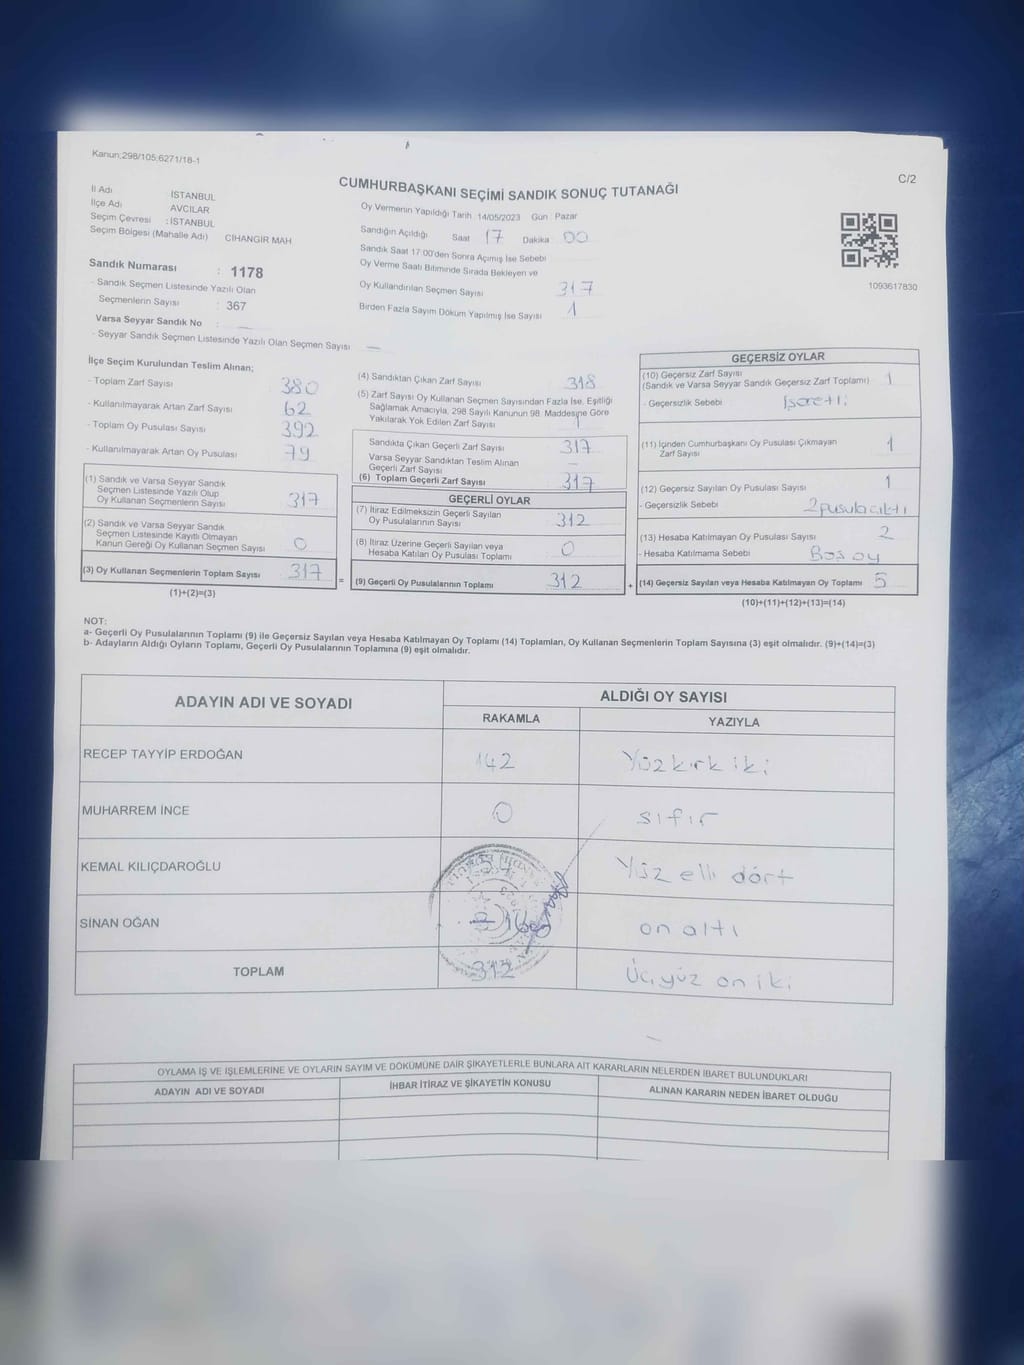 Kanun;298/105;6271/18-1
C/2
CUMHURBAŞKANI SEÇİMİ SANDIK SONUÇ TUTANAĞI
İl Adı İSTANBUL
İlçe Adı AVCILAR
Seçim Çevresi : İSTANBUL
Seçim Bölgesi (Mahalle Adı) CİHANGİR MAH
Sandık Numarası : 1178
- Sandık Seçmen Listesinde Yazılı Olan
Seçmenlerin Sayısı : 367
Varsa Seyyar Sandık No :
- Seyyar Sandık Seçmen Listesinde Yazılı Olan Seçmen Sayısı —
Oy Vermenin Yapıldığı Tarih 14/05/2023 Gün Pazar
Sandığın Açıldığı Saat 17 Dakika 00
Sandık Saat 17:00'den Sonra Açılmış İse Sebebi
Oy Verme Saati Bitiminde Sırada Bekleyen ve
Oy Kullandırılan Seçmen Sayısı 317
Birden Fazla Sayım Döküm Yapılmış İse Sayısı 1
1093617830
İlçe Seçim Kurulundan Teslim Alınan;
- Toplam Zarf Sayısı 380
- Kullanılmayarak Artan Zarf Sayısı 62
- Toplam Oy Pusulası Sayısı 392
- Kullanılmayarak Artan Oy Pusulası 79
(1) Sandık ve Varsa Seyyar Sandık
Seçmen Listesinde Yazılı Olup
Oy Kullanan Seçmenlerin Sayısı 317
(2) Sandık ve Varsa Seyyar Sandık
Seçmen Listesinde Kayıtlı Olmayan
Kanun Gereği Oy Kullanan Seçmen Sayısı 0
(3) Oy Kullanan Seçmenlerin Toplam Sayısı 317
(1)+(2)=(3)
=
(4) Sandıktan Çıkan Zarf Sayısı 318
(5) Zarf Sayısı Oy Kullanan Seçmen Sayısından Fazla İse, Eşitliği
Sağlamak Amacıyla, 298 Sayılı Kanunun 98. Maddesine Göre
Yakılarak Yok Edilen Zarf Sayısı 1
Sandıkta Çıkan Geçerli Zarf Sayısı 317
Varsa Seyyar Sandıktan Teslim Alınan
Geçerli Zarf Sayısı —
(6) Toplam Geçerli Zarf Sayısı 317
GEÇERLİ OYLAR
(7) İtiraz Edilmeksizin Geçerli Sayılan
Oy Pusulalarının Sayısı 312
(8) İtiraz Üzerine Geçerli Sayılan veya
Hesaba Katılan Oy Pusulası Toplamı 0
(9) Geçerli Oy Pusulalarının Toplamı 312
+
GEÇERSİZ OYLAR
(10) Geçersiz Zarf Sayısı
(Sandık ve Varsa Seyyar Sandık Geçersiz Zarf Toplamı) 1
- Geçersizlik Sebebi İşaretli
(11) İçinden Cumhurbaşkanı Oy Pusulası Çıkmayan
Zarf Sayısı 1
(12) Geçersiz Sayılan Oy Pusulası Sayısı 1
- Geçersizlik Sebebi 2 pusula çıktı
(13) Hesaba Katılmayan Oy Pusulası Sayısı 2
- Hesaba Katılmama Sebebi Boş oy
(14) Geçersiz Sayılan veya Hesaba Katılmayan Oy Toplamı 5
(10)+(11)+(12)+(13)=(14)
NOT:
a- Geçerli Oy Pusulalarının Toplamı (9) ile Geçersiz Sayılan veya Hesaba Katılmayan Oy Toplamı (14) Toplamları, Oy Kullanan Seçmenlerin Toplam Sayısına (3) eşit olmalıdır. (9)+(14)=(3)
b- Adayların Aldığı Oyların Toplamı, Geçerli Oy Pusulalarının Toplamına (9) eşit olmalıdır.
ADAYIN ADI VE SOYADI ALDIĞI OY SAYISI
RAKAMLA YAZIYLA
RECEP TAYYİP ERDOĞAN 142 Yüz kırk iki
MUHARREM İNCE 0 sıfır
KEMAL KILIÇDAROĞLU Yüz elli dört
SİNAN OĞAN 16 on altı
TOPLAM 312 Üç yüz on iki
OYLAMA İŞ VE İŞLEMLERİNE VE OYLARIN SAYIM VE DÖKÜMÜNE DAİR ŞİKAYETLERLE BUNLARA AİT KARARLARIN NELERDEN İBARET BULUNDUKLARI
ADAYIN ADI VE SOYADI İHBAR İTİRAZ VE ŞİKAYETİN KONUSU ALINAN KARARIN NEDEN İBARET OLDUĞU